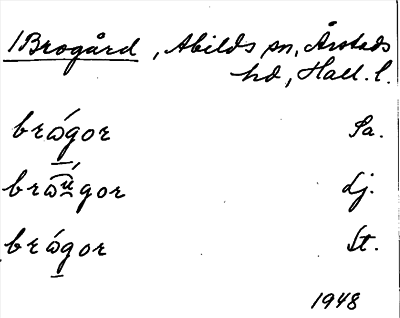 1 Brogård, Abilds sn, Årstads
hd, Hall. l.
brώgor Sa.
brωu̇́gor dj.
brώgor St.
1948